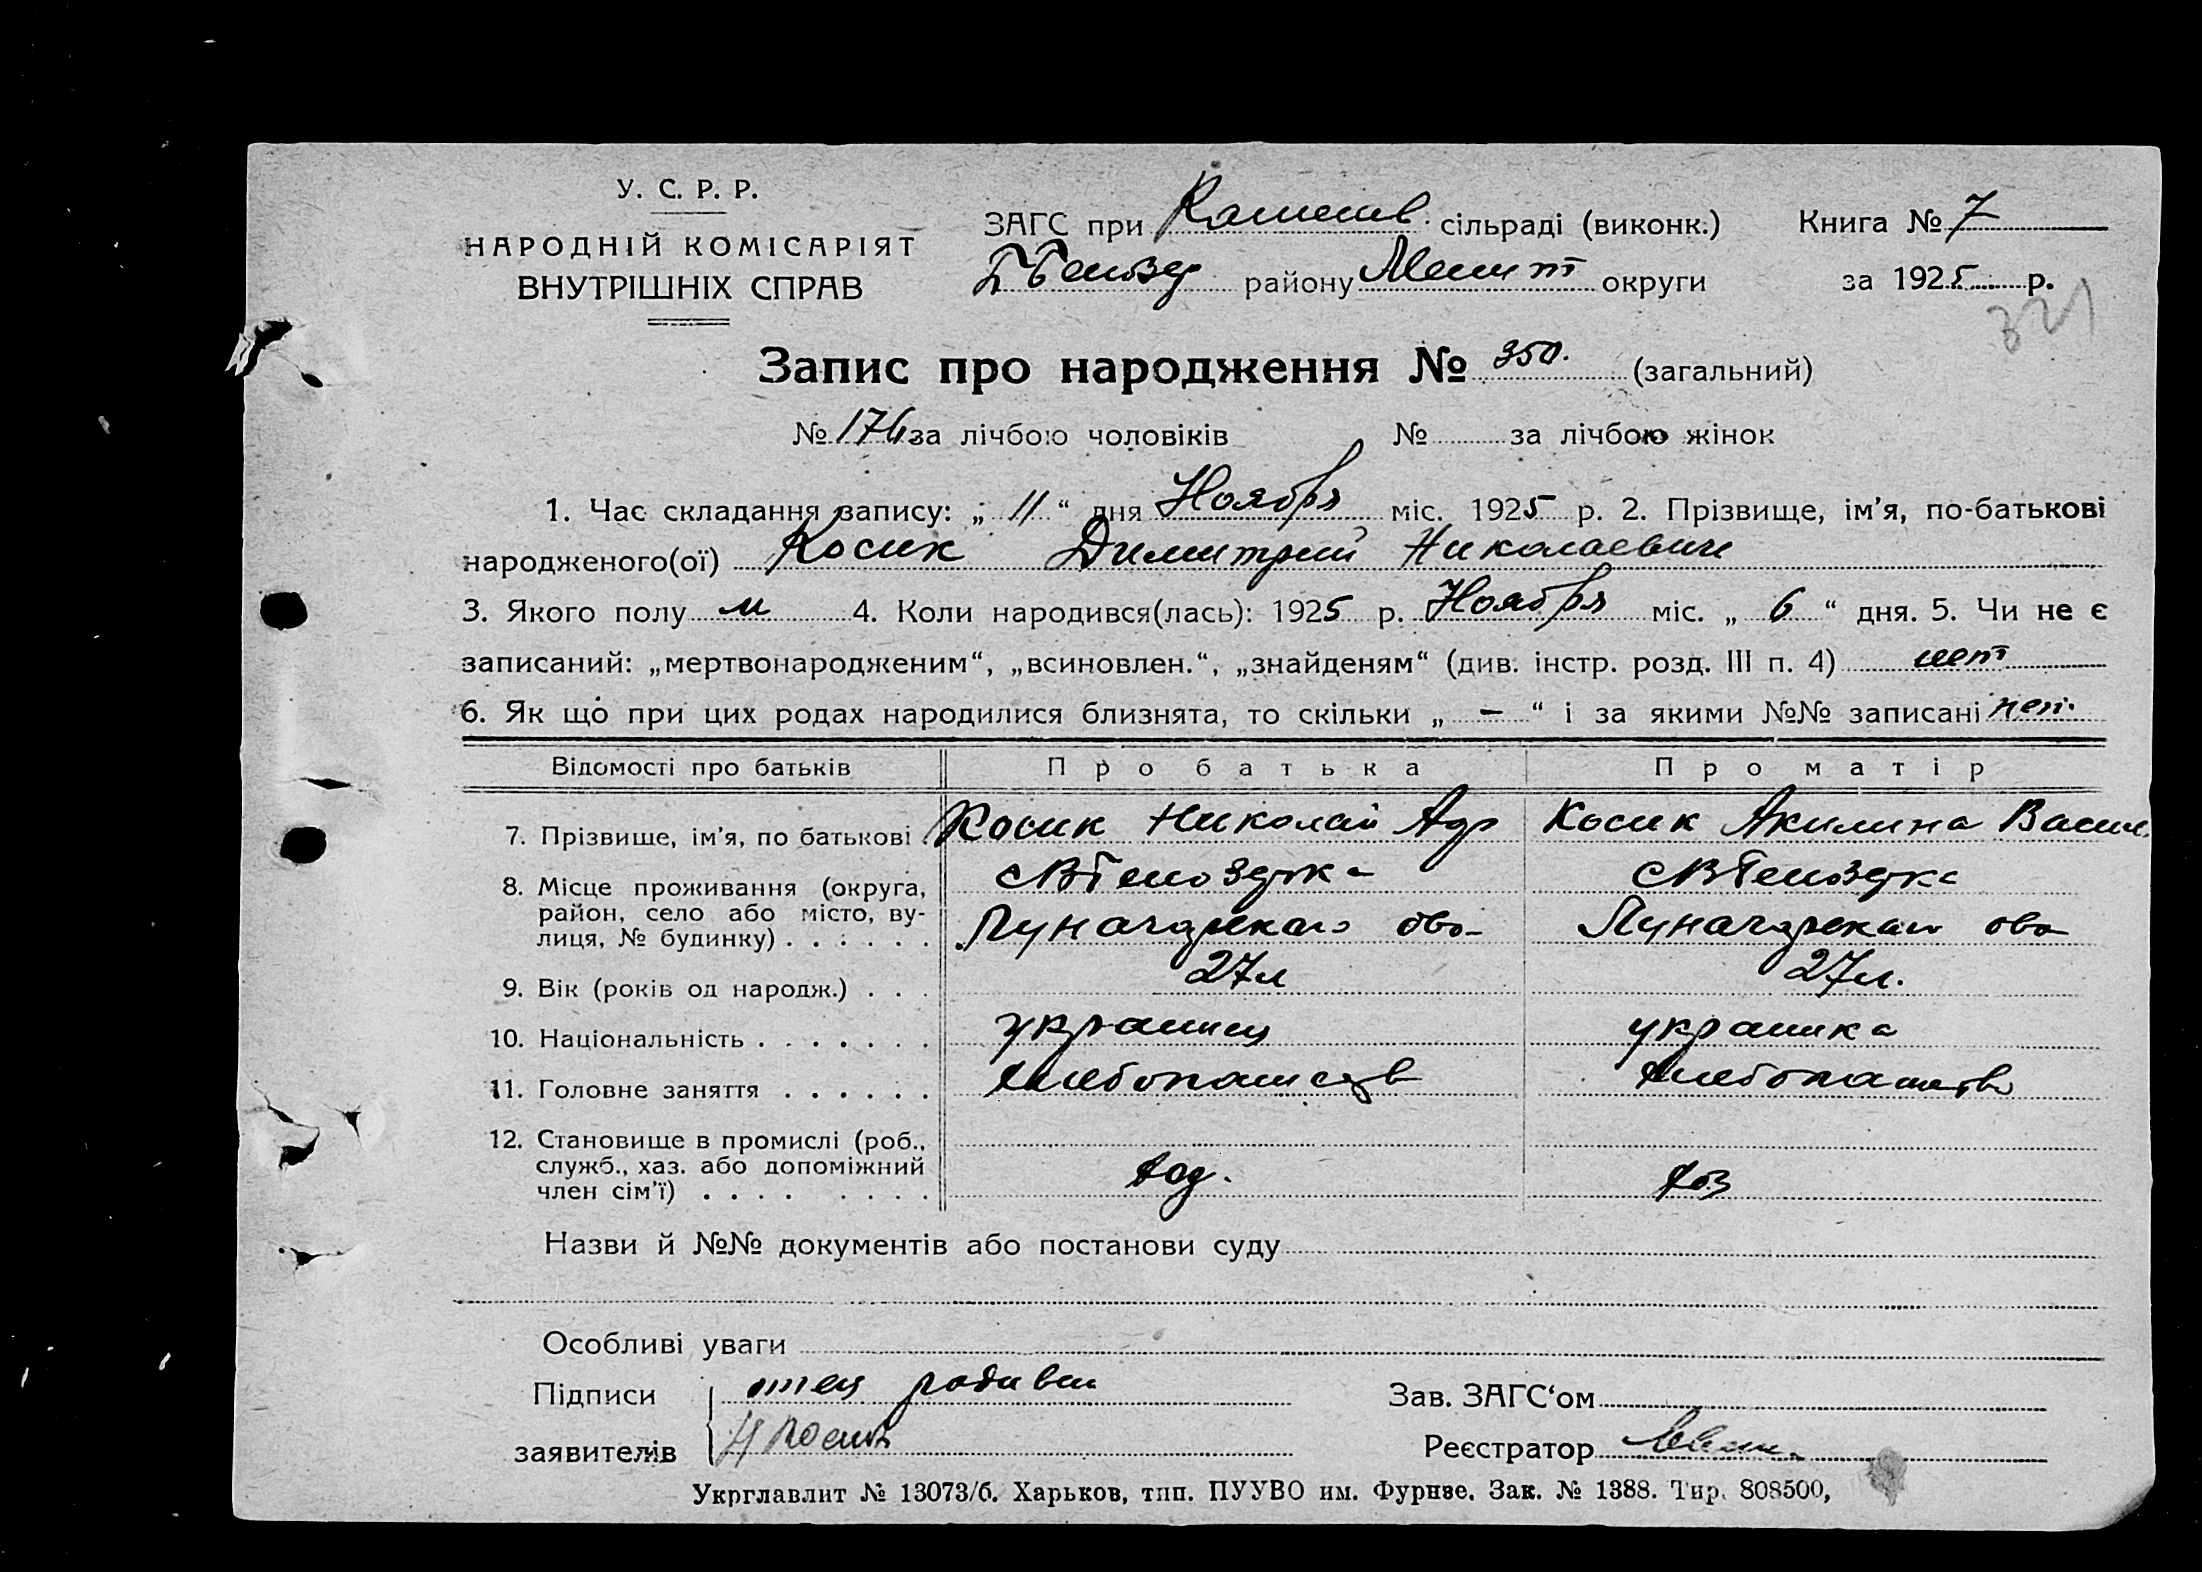 У. С. Р. Р.
НАРОДНІЙ КОМІСАРІЯТ
ВНУТРІШНІХ СПРАВ
ЗАГС при сільраді (виконк.) Книга № 7
району Мелит округи за 1925 р.
321
Запис про народження № 350. (загальний)
№ 176 за лічбою чоловіків № за лічбою жінок
1. Час складання запису: „ 11 “ дня Ноября міс. 1925 р. 2. Прізвище, ім’я, по-батькові
народженого(ої) Косик Димитрий Николаевич
3. Якого полу м 4. Коли народився(лась): 1925 р. Ноября міс. „ 6 “ дня. 5. Чи не є
записаний: „мертвонародженим“, „всиновлен.“, „знайденям“ (див. інстр. розд. III п. 4) нет
6. Як що при цих родах народилися близнята, то скільки „ — “ і за якими №№ записані нет.
Відомості про батьків Про батька Про матір
7. Прізвище, ім’я, по батькові . Косик Николай Адр Косик Акилина Васил
8. Місце проживання (округа,
район, село або місто, ву-
лиця, № будинку) . . . . . .
9. Вік (років од народж.) . . . 27л 27л.
10. Національність . . . . . . . украинец украинка
11. Головне заняття . . . . . . хлебопашеств хлебопашество
12. Становище в промислі (роб.,
служб., хаз. або допоміжний
член сім’ї) . . . . . . . . хоз. хоз
Назви й №№ документів або постанови суду
Особливі уваги
Підписи отец Зав. ЗАГС‘ом
заявителів Н Косик Реєстратор
Укрглавлит № 13073/б. Харьков, тип. ПУУВО им. Фрунзе. Зак. № 1388. Тир. 808500,